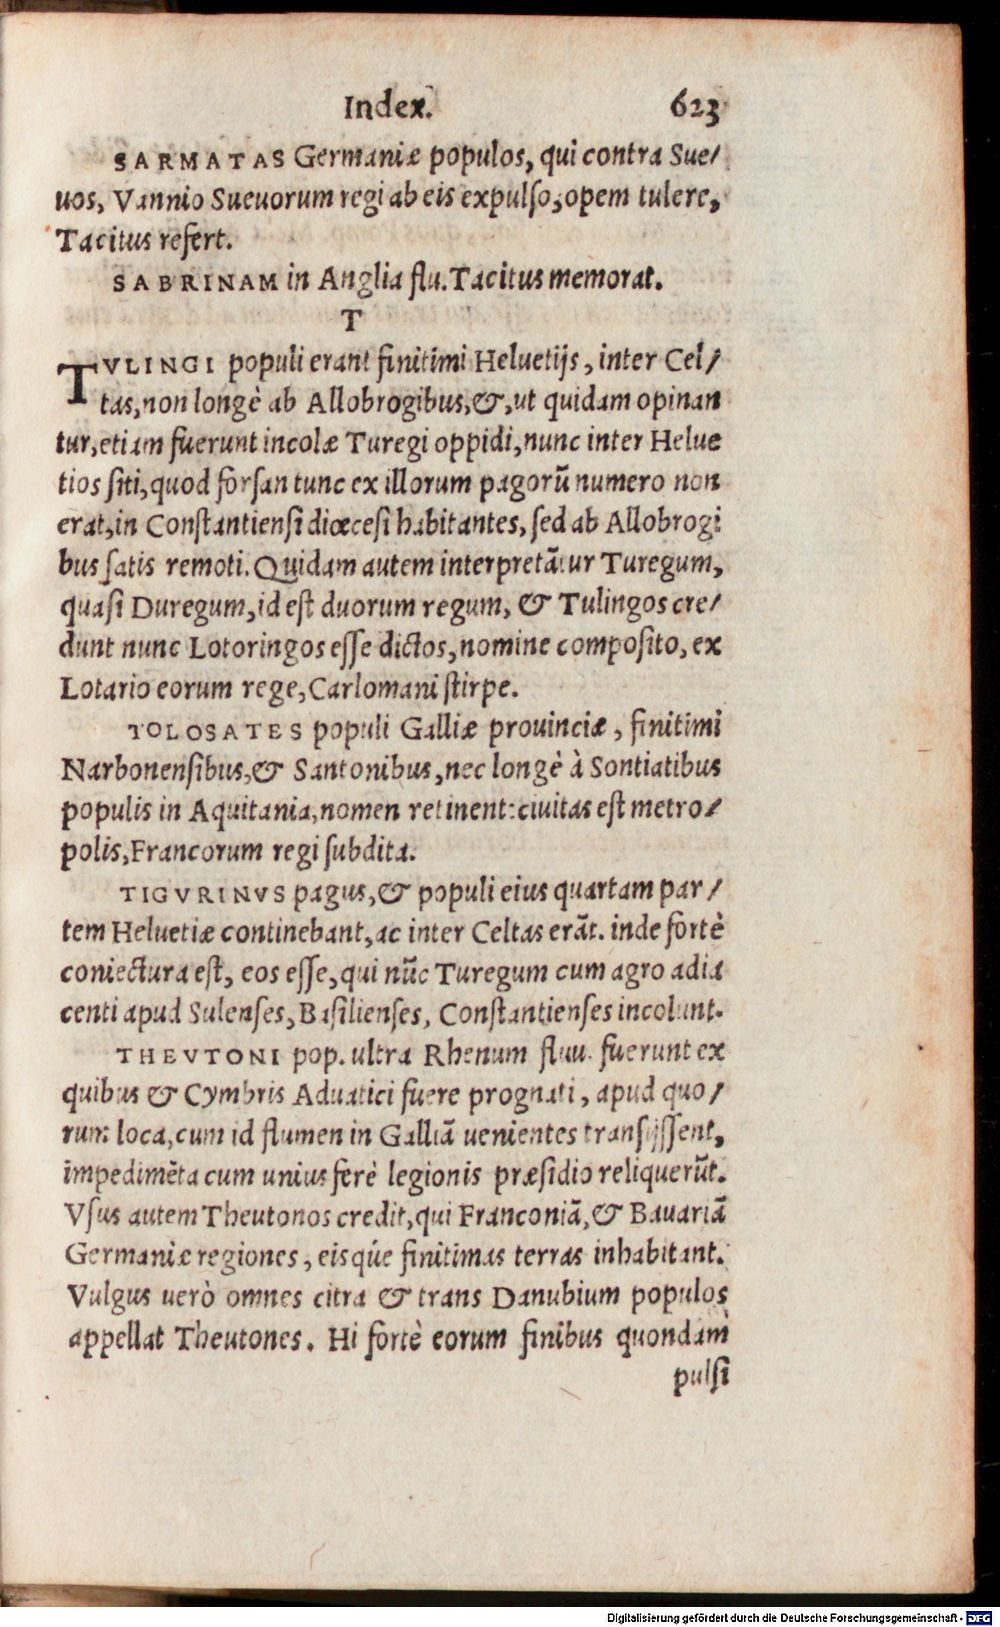 Index. 623
SARMATAS Germaniæ populos, qui contra Sue/
uos, Vannio Sueuorum regi ab eis expulso, opem tulere,
Tacitus refert.
SABRINAM in Anglia flu. Tacitus memorat.
T
TVLINGI populi erant finitimi Heluetijs, inter Cel/
tas, non longè ab Allobrogibus, &, ut quidam opinan
tur, etiam fuerunt incolæ Turegi oppidi, nunc inter Helue
tios siti, quod forsan tunc ex illorum pagorū numero non
erat, in Constantiensi diœcesi habitantes, sed ab Allobrogi
bus satis remoti. Quidam autem interpretātur Turegum,
quasi Duregum, id est duorum regum, & Tulingos cre/
dunt nunc Lotoringos esse dictos, nomine composito, ex
Lotario eorum rege, Carlomani stirpe.
TOLOSATES populi Galliæ prouinciæ, finitimi
Narbonensibus, & Santonibus, nec longè à Sontiatibus
populis in Aquitania, nomen retinent: ciuitas est metro/
polis, Francorum regi subdita.
TIGVRINVS pagus, & populi eius quartam par/
tem Heluetiæ continebant, ac inter Celtas erāt. inde fortè
coniectura est, eos esse, qui nūc Turegum cum agro adia
centi apud Sulenses, Basilienses, Constantienses incolunt.
THEVTONI pop. ultra Rhenum fluu. fuerunt ex
quibus & Cymbris Aduatici fuere prognati, apud quo/
rum loca, cum id flumen in Galliā uenientes transijssent,
impedimēta cum unius ferè legionis præsidio reliquerūt.
Vsus autem Theutonos credit, qui Franconiā, & Bauariā
Germaniæ regiones, eisqúe finitimas terras inhabitant.
Vulgus uerò omnes citra & trans Danubium populos
appellat Theutones. Hi fortè eorum finibus quondam
pulsi
Digitalisierung gefördert durch die Deutsche Forschungsgemeinschaft - DFG